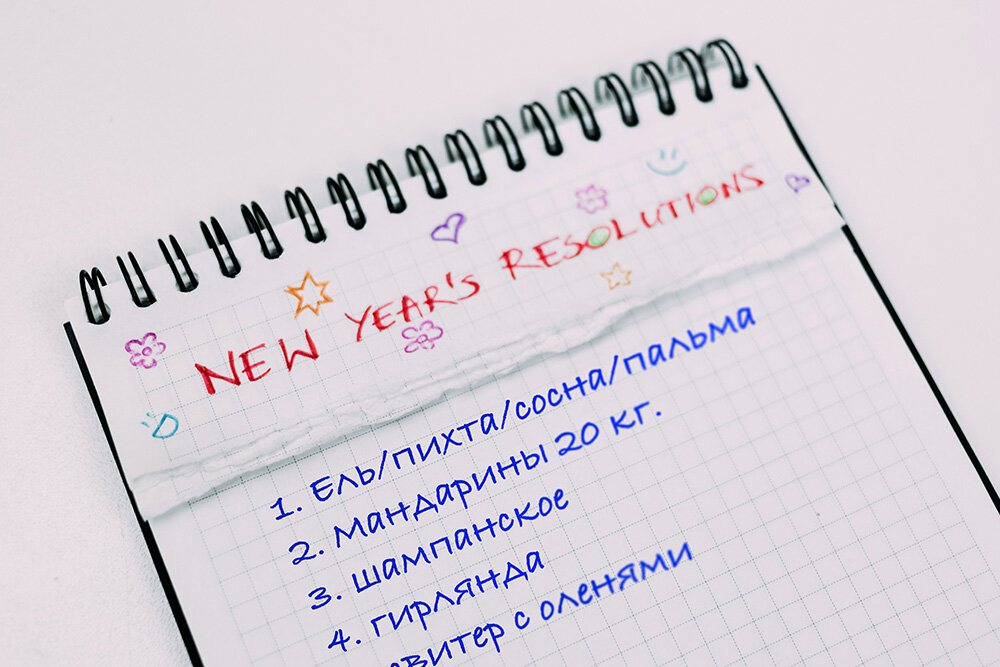 NEW YEAR'S RESOLUTIONS
1. Ель/пихта/сосна/пальма
2. Мандарины 20 кг.
3. шампанское
4. гирлянда
свитер с оленями